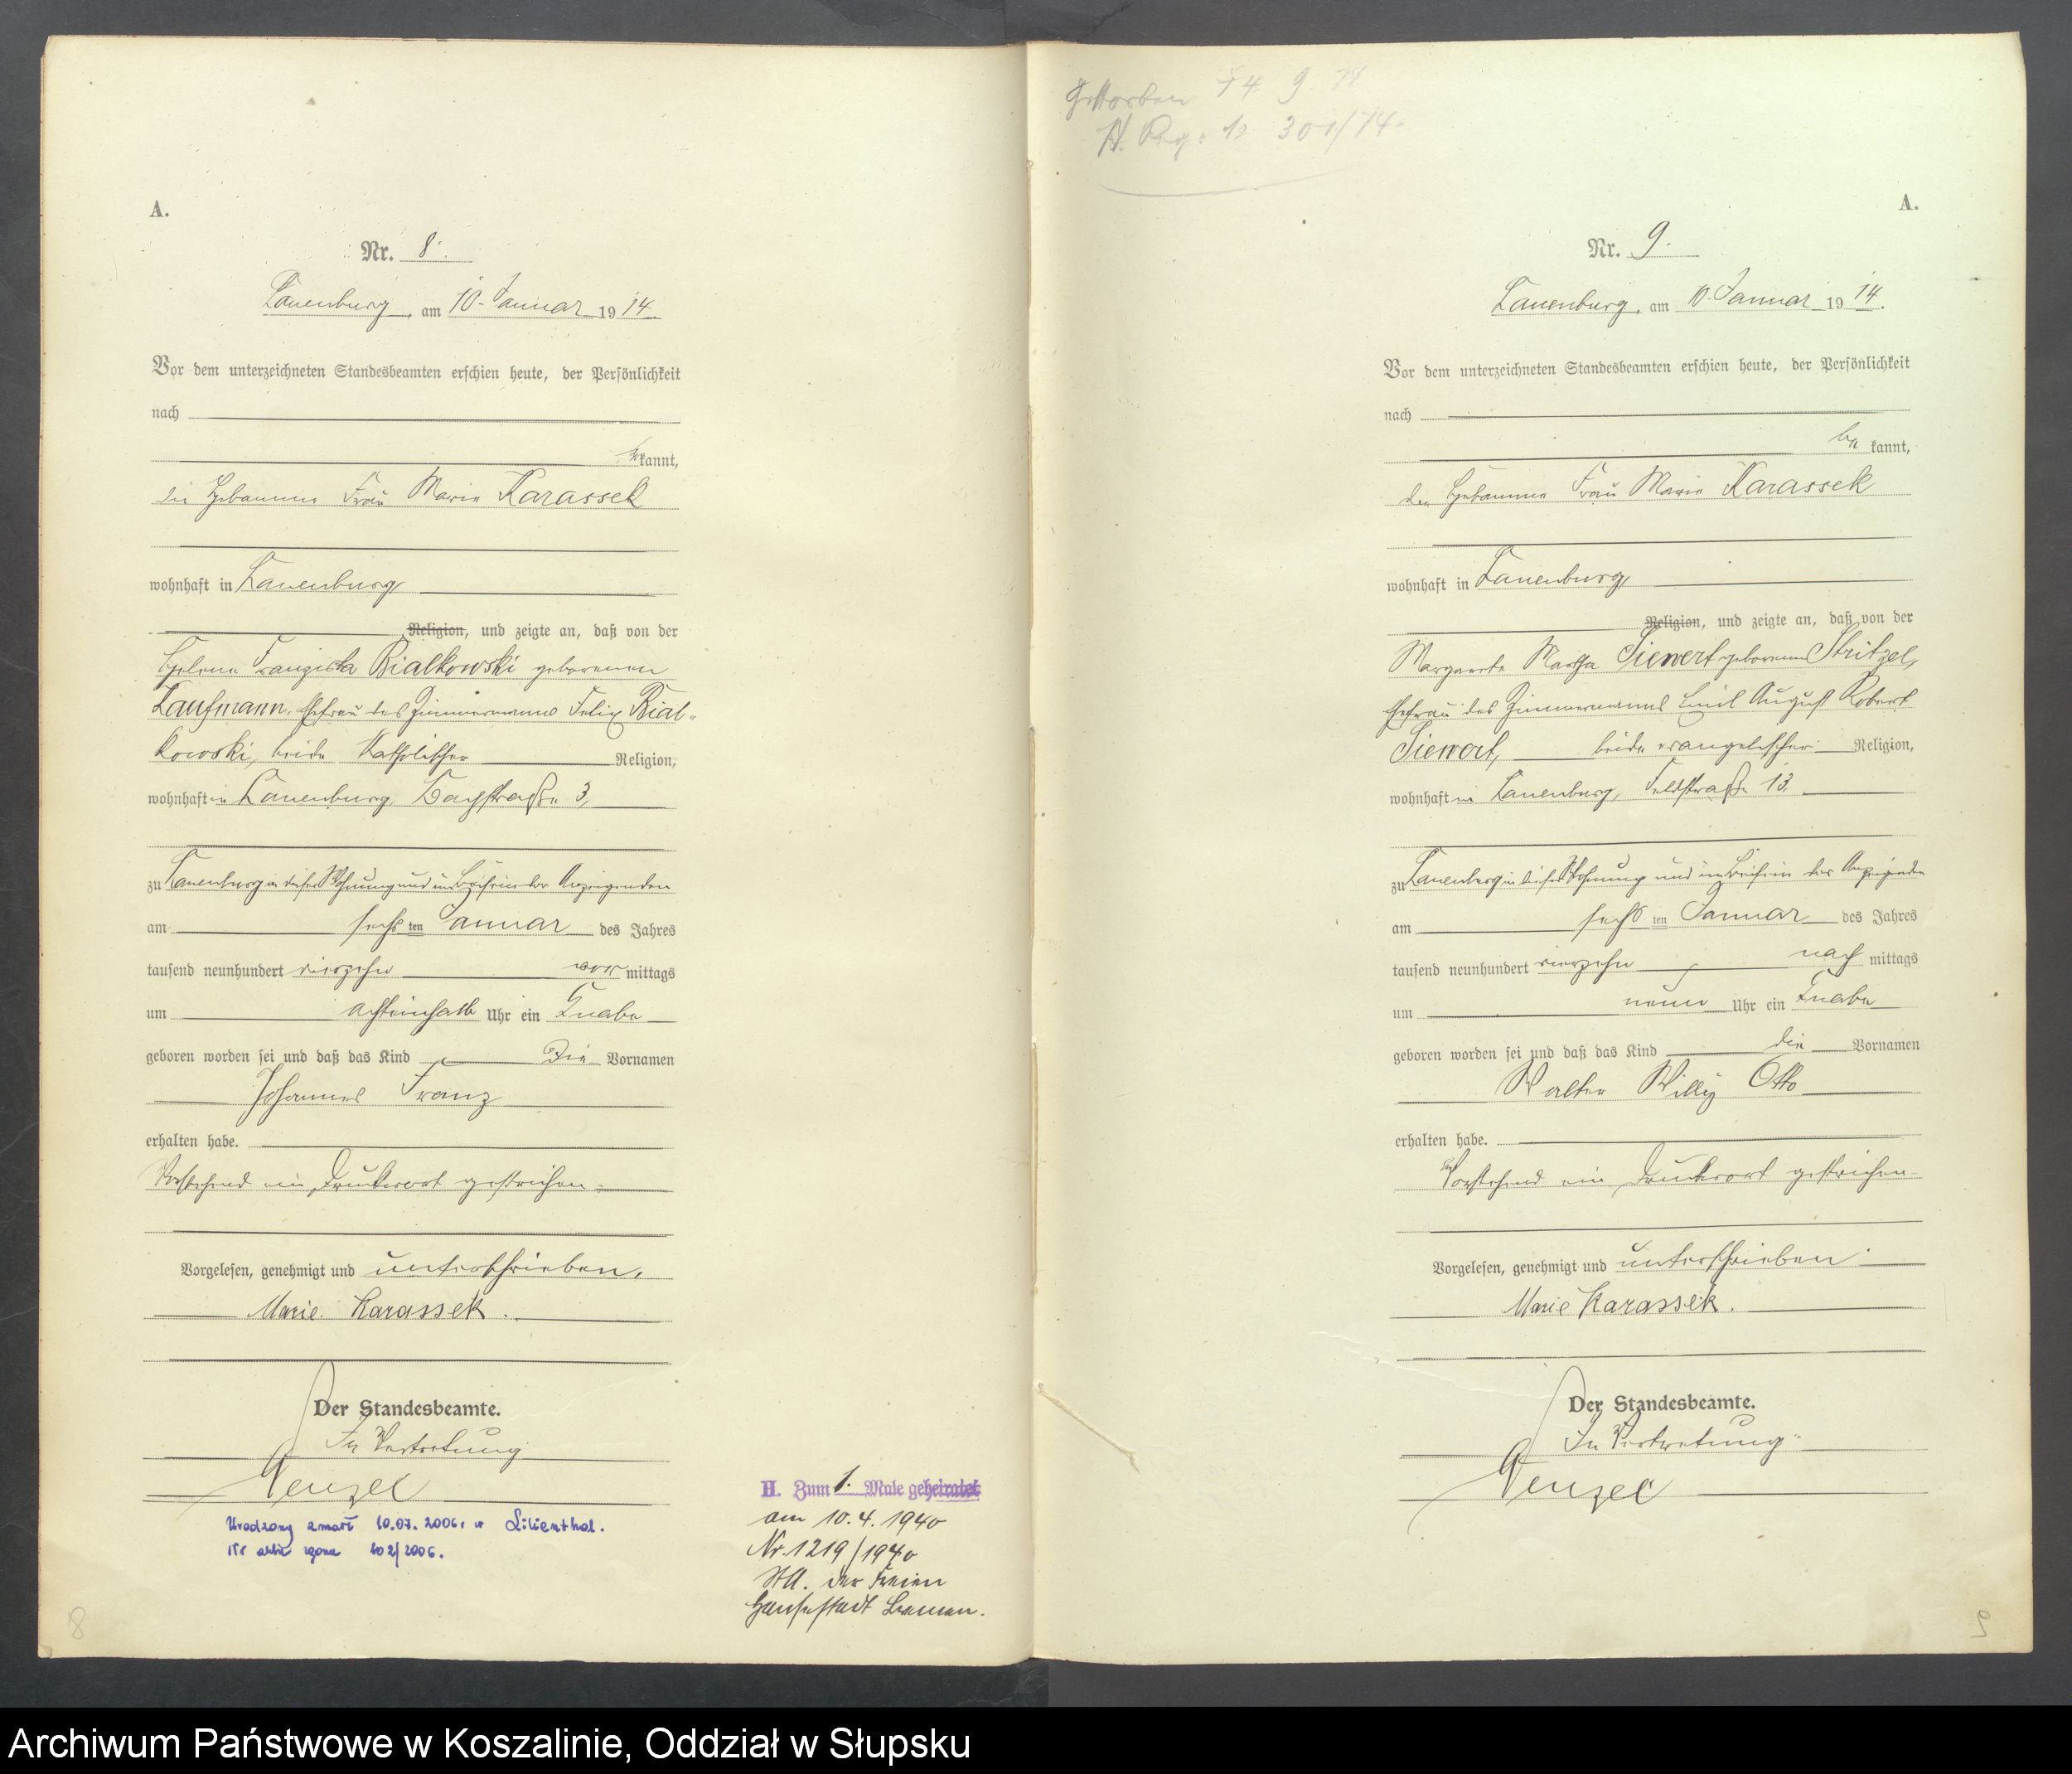 A.
Nr. 8.
Lauenburg, am 10. Januar 1914.
Vor dem unterzeichneten Standesbeamten erschien heute, der Persönlichkeit
nach
kannt,
die Hebamme Frau Marie Karassek
wohnhaft in Lauenburg
Religion, und zeigte an, daß von der
Helene Franziska Bialkowski geborenen
Kaufmann, Ehefrau des Zimmermanns Felix Bial-
kowski, beide katholischer Religion,
wohnhaft in Lauenburg, Bachstraße 3,
zu Lauenburg in dieser Wohnung und im Beisein der Anzeigenden
am sechsten Januar des Jahres
tausend neunhundert vierzehn vormittags
um achteinhalb Uhr ein Knabe
geboren worden sei und daß das Kind die Vornamen
Johannes Franz
erhalten habe.
Vorstehend ein Druckwort gestrichen.
Vorgelesen, genehmigt und unterschrieben.
Marie Karassek.
Der Standesbeamte.
In Vertretung
Wenzel
Urodzony zmarł 10.07.2006 r w Lilienthal.
Nr aktu zgonu 102/2006.
H. Zum 1. Male geheiratet
am 10.4.1940
Nr. 1219/1940
StA. der Freien
Hansestadt Bremen.
8
Gestorben 14. 9. 14
H. Reg. 301/14.
A.
Nr. 9.
Lauenburg, am 10. Januar 1914.
Vor dem unterzeichneten Standesbeamten erschien heute, der Persönlichkeit
nach
be kannt,
die Hebamme Frau Marie Karassek
wohnhaft in Lauenburg
Religion, und zeigte an, daß von der
Margarete Martha Siewert geborenen Stritzel,
Ehefrau des Zimmermanns Emil August Robert
Siewert, beide evangelischer Religion,
wohnhaft in Lauenburg, Feldstraße 13.
zu Lauenburg in dieser Wohnung und im Beisein der Anzeigenden
am sechsten Januar des Jahres
tausend neunhundert vierzehn nachmittags
um neun Uhr ein Knabe
geboren worden sei und daß das Kind die Vornamen
Walter Willy Otto
erhalten habe.
Vorstehend ein Druckwort gestrichen.
Vorgelesen, genehmigt und unterschrieben.
Marie Karassek.
Der Standesbeamte.
In Vertretung
Wenzel
9
Archiwum Państwowe w Koszalinie, Oddział w Słupsku